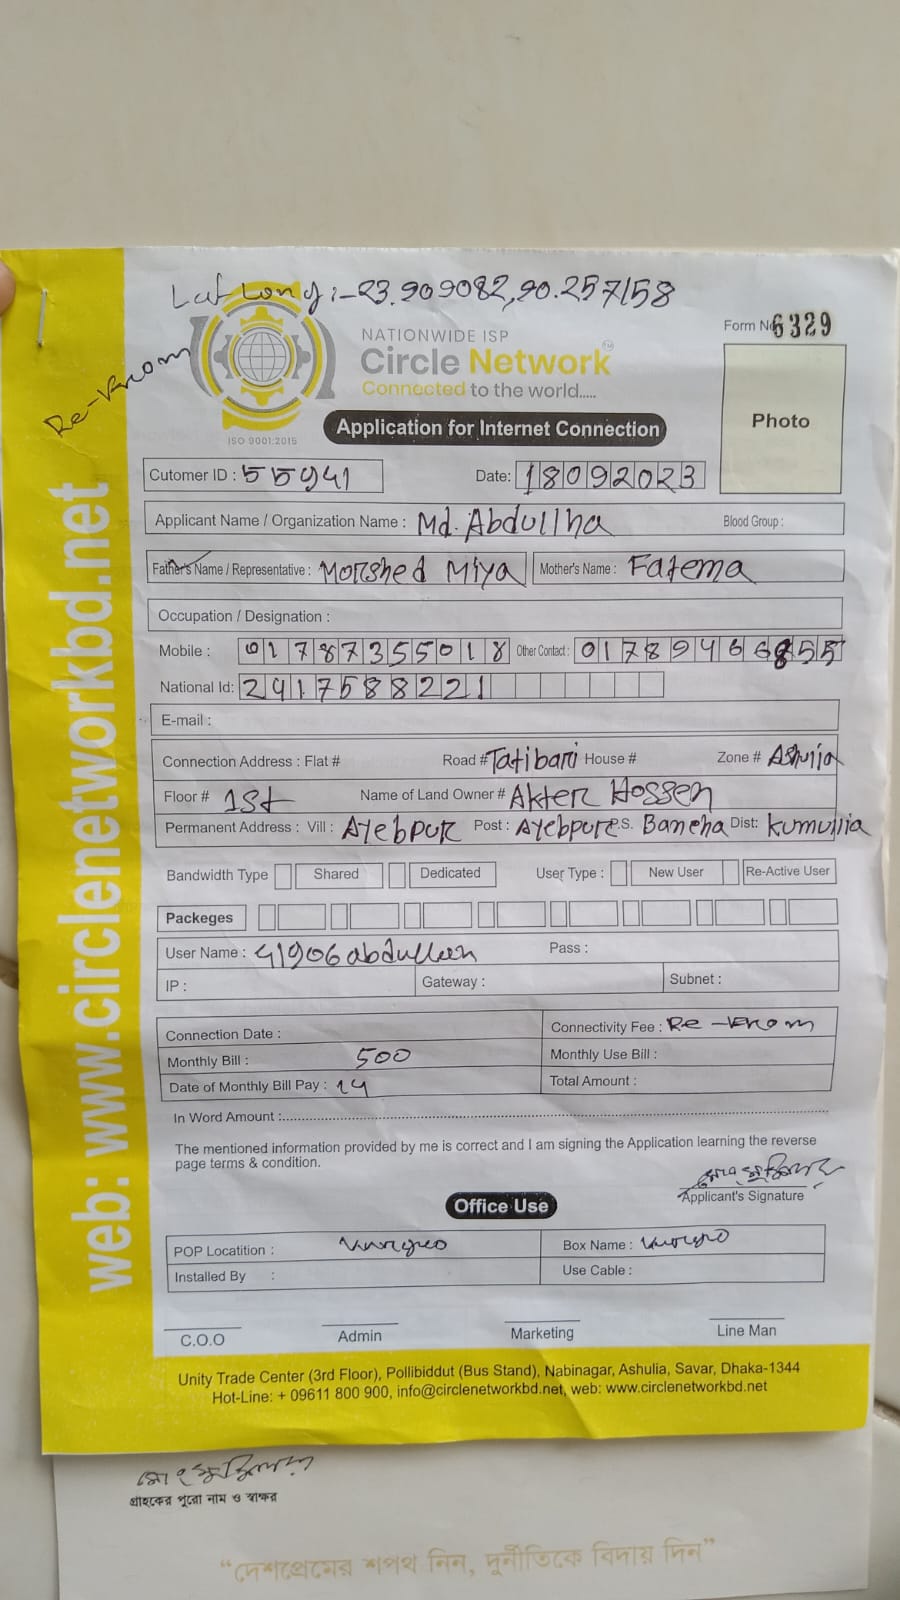 Lat Long:-23.909082,90.257158
Form No 6329
NATIONWIDE ISP
Circle Network
TM
Connected to the world.....
Re-
ISO 9001:2015
Application for Internet Connection
Photo
Cutomer ID : 55941
Date: 18092023
Applicant Name / Organization Name : Md. Abdullha
Blood Group :
Father's Name / Representative : Morshed Miya
Mother's Name : Fatema
Occupation / Designation :
Mobile : 01787355018
Other Contact : 01789466855
National Id: 2417588221
E-mail :
Connection Address : Flat # Road # Tatibari House # Zone # Ashulia
Floor # 1st Name of Land Owner # Akter Hossen
Permanent Address : Vill : Ayebpur Post : Ayebpur P.S. Dist:
Bandwidth Type Shared Dedicated User Type : New User Re-Active User
Packeges
User Name : 41906abdullah Pass :
IP : Gateway : Subnet :
Connection Date :
Connectivity Fee : Re-
Monthly Bill : 500
Monthly Use Bill :
Date of Monthly Bill Pay : 14
Total Amount :
In Word Amount :
The mentioned information provided by me is correct and I am signing the Application learning the reverse
page terms & condition.
Applicant's Signature
Office Use
POP Locatition :
Box Name :
Installed By :
Use Cable :
C.O.O Admin Marketing Line Man
Unity Trade Center (3rd Floor), Pollibiddut (Bus Stand), Nabinagar, Ashulia, Savar, Dhaka-1344
Hot-Line: + 09611 800 900, info@circlenetworkbd.net, web: www.circlenetworkbd.net
web: www.circlenetworkbd.net
গ্রাহকের পুরো নাম ও স্বাক্ষর
“দেশপ্রেমের শপথ নিন, দুর্নীতিকে বিদায় দিন”